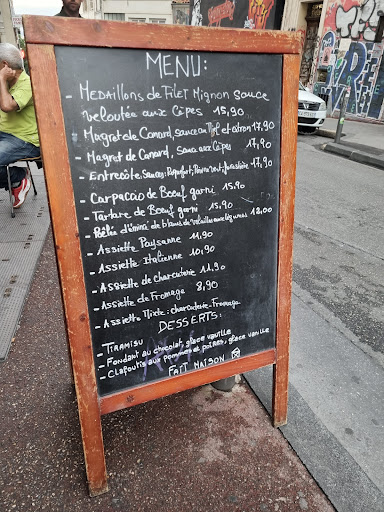 MENU:
- MEDAILLONS de FILET Mignon sauce
veloutée aux Cèpes 15,90
- Magret de Canard, sauce au miel et citron 17,90
- Magret de Canard, Sauce aux Cèpes 17,90
- Entrecôte, Sauces: Roquefort, Poivre vert, forestière 17,90
- Carpaccio de Boeuf garni 15,90
- Tartare de Boeuf garni 15,90
- Poêlée d'émincé de blancs de volailles aux légumes 12,00
- Assiette Paysanne 11,90
- Assiette Italienne 10,90
- Assiette de charcuterie 11,90
- Assiette de Fromage 8,90
- Assiette Mixte: charcuterie-Fromage
DESSERTS:
- TIRAMISU
- Fondant au chocolat, glace vanille
- Clafoutis aux pommes et poires, glace vanille
FAIT MAISON